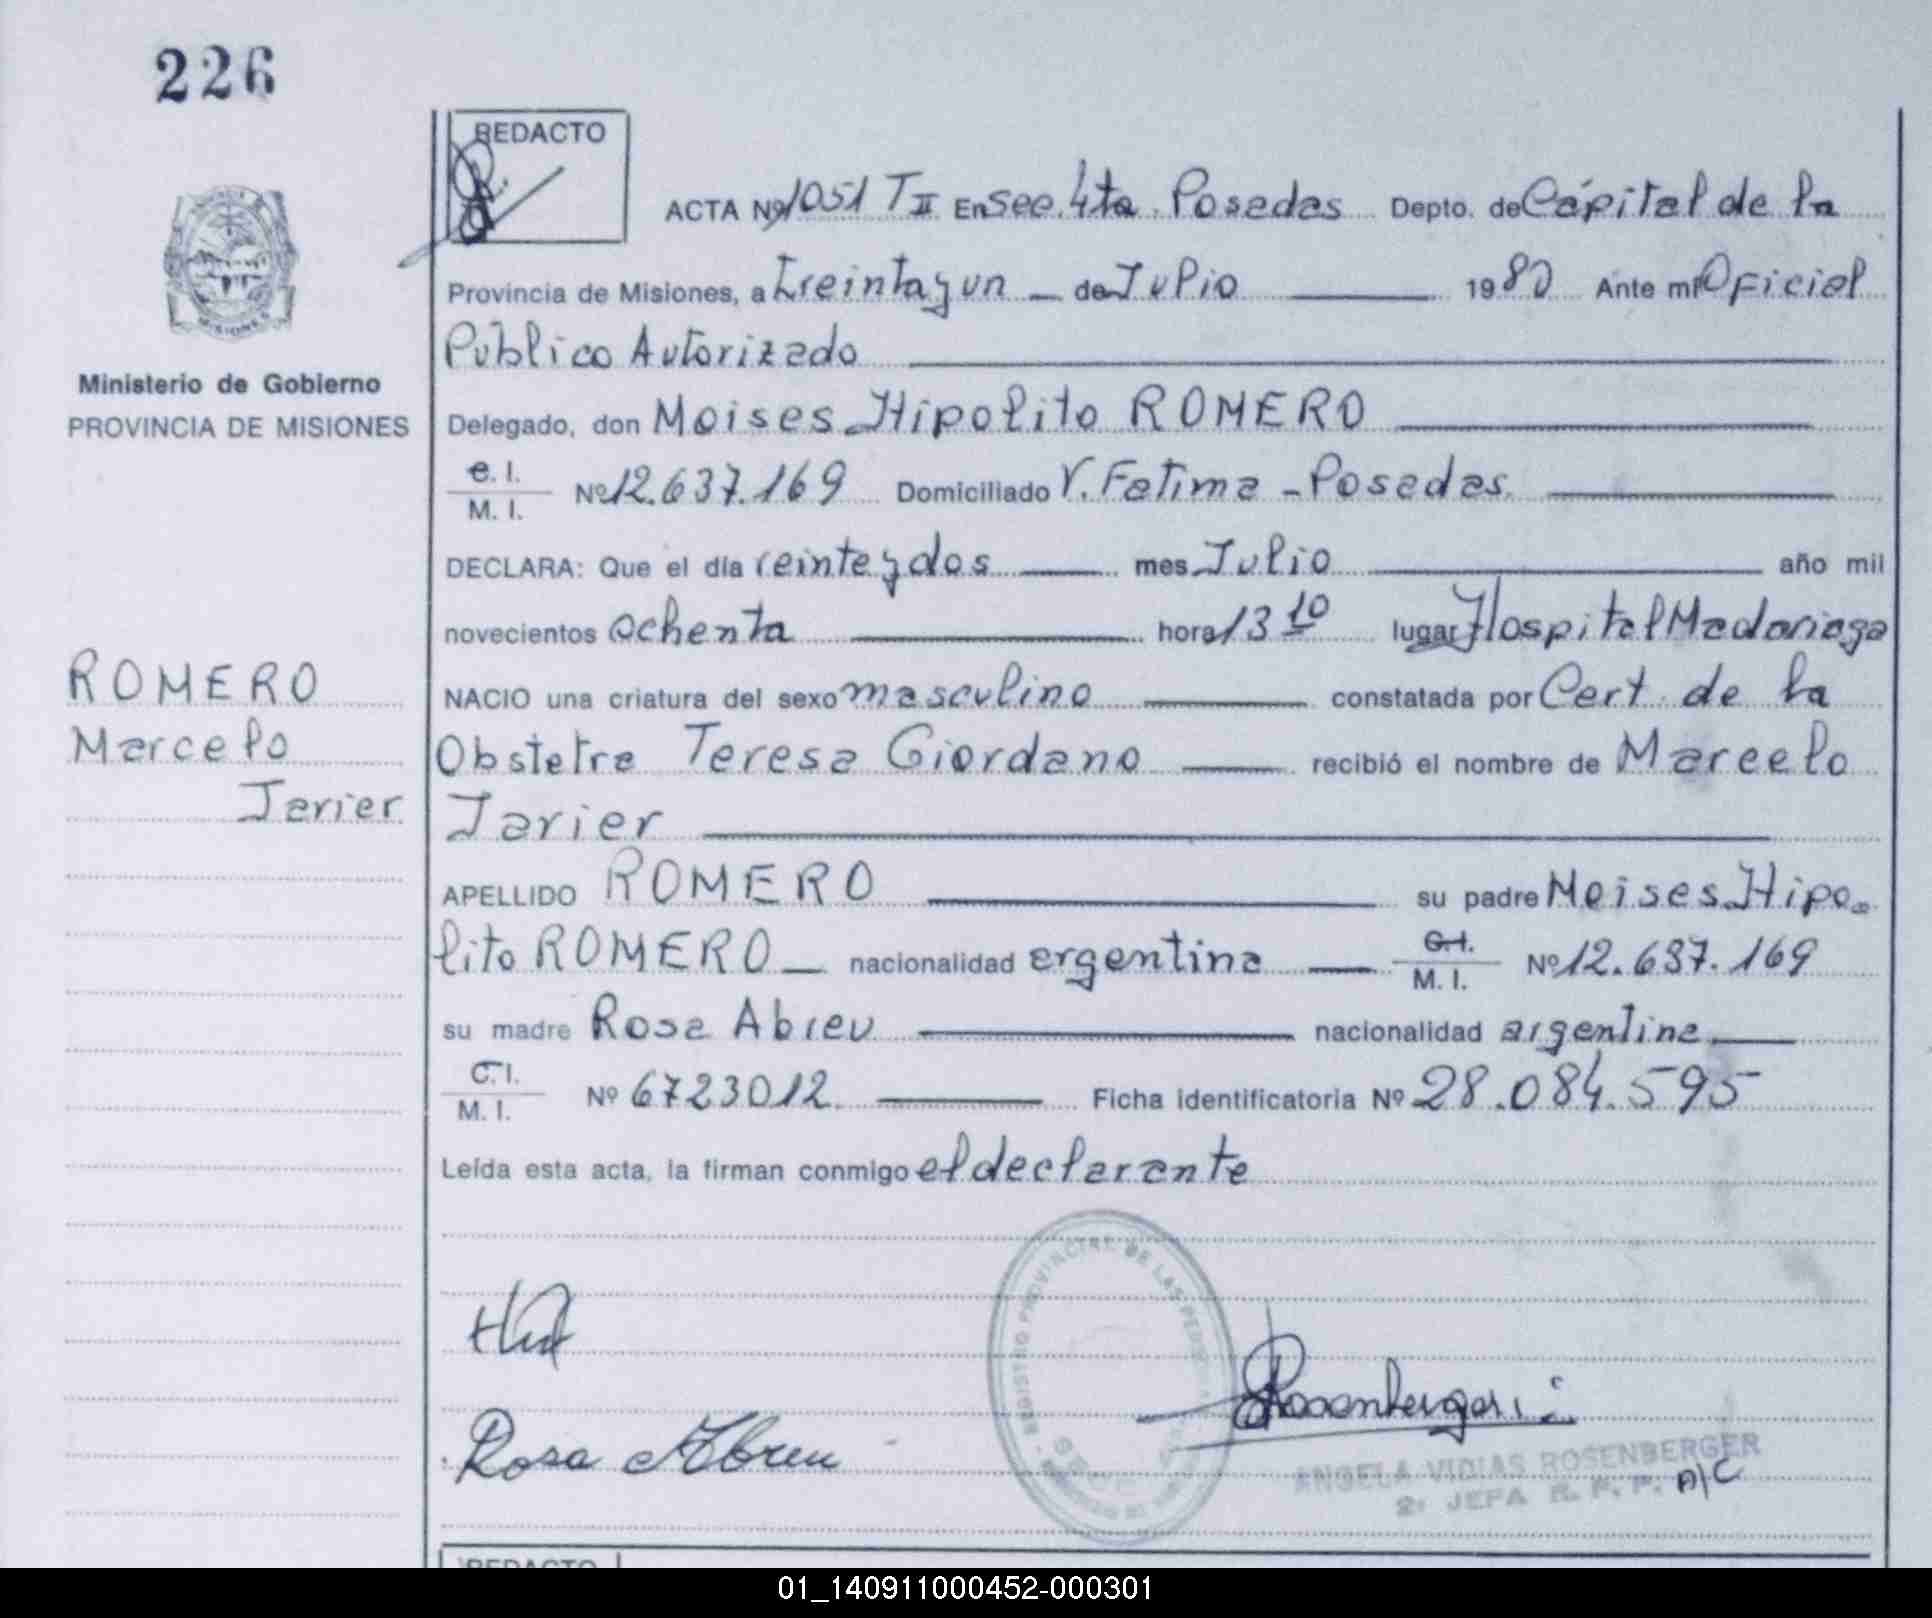 226
REDACTO
ACTA Nº 1051 T II En Sec. 4ta. Posadas Depto. de Capital de la
Provincia de Misiones, a treinta y un de Julio 1980 Ante mi Oficial
Público Autorizado
Ministerio de Gobierno
PROVINCIA DE MISIONES
Delegado, don Moises Hipolito ROMERO
C. I.
M. I. Nº 12.637.169 Domiciliado V. Fatima - Posadas
DECLARA: Que el día veinte y dos mes Julio año mil
novecientos ochenta hora 13 10 lugar Hospital Madariaga
ROMERO
Marcelo
Javier
NACIO una criatura del sexo masculino constatada por Cert. de la
Obstetra Teresa Giordano recibió el nombre de Marcelo
Javier
APELLIDO ROMERO su padre Moises Hipo-
lito ROMERO nacionalidad argentina C.I.
M. I. Nº 12.637.169
su madre Rosa Abreu nacionalidad argentina
C.I.
M. I. Nº 6723012 Ficha identificatoria Nº 28.084.595
Leída esta acta, la firman conmigo el declarante
REGISTRO PROVINCIAL DE LAS PERSONAS
Rosa Abreu
ANGELA VIDIAS ROSENBERGER
2: JEFA R. P. P. A/C
REDACTO
01_140911000452-000301